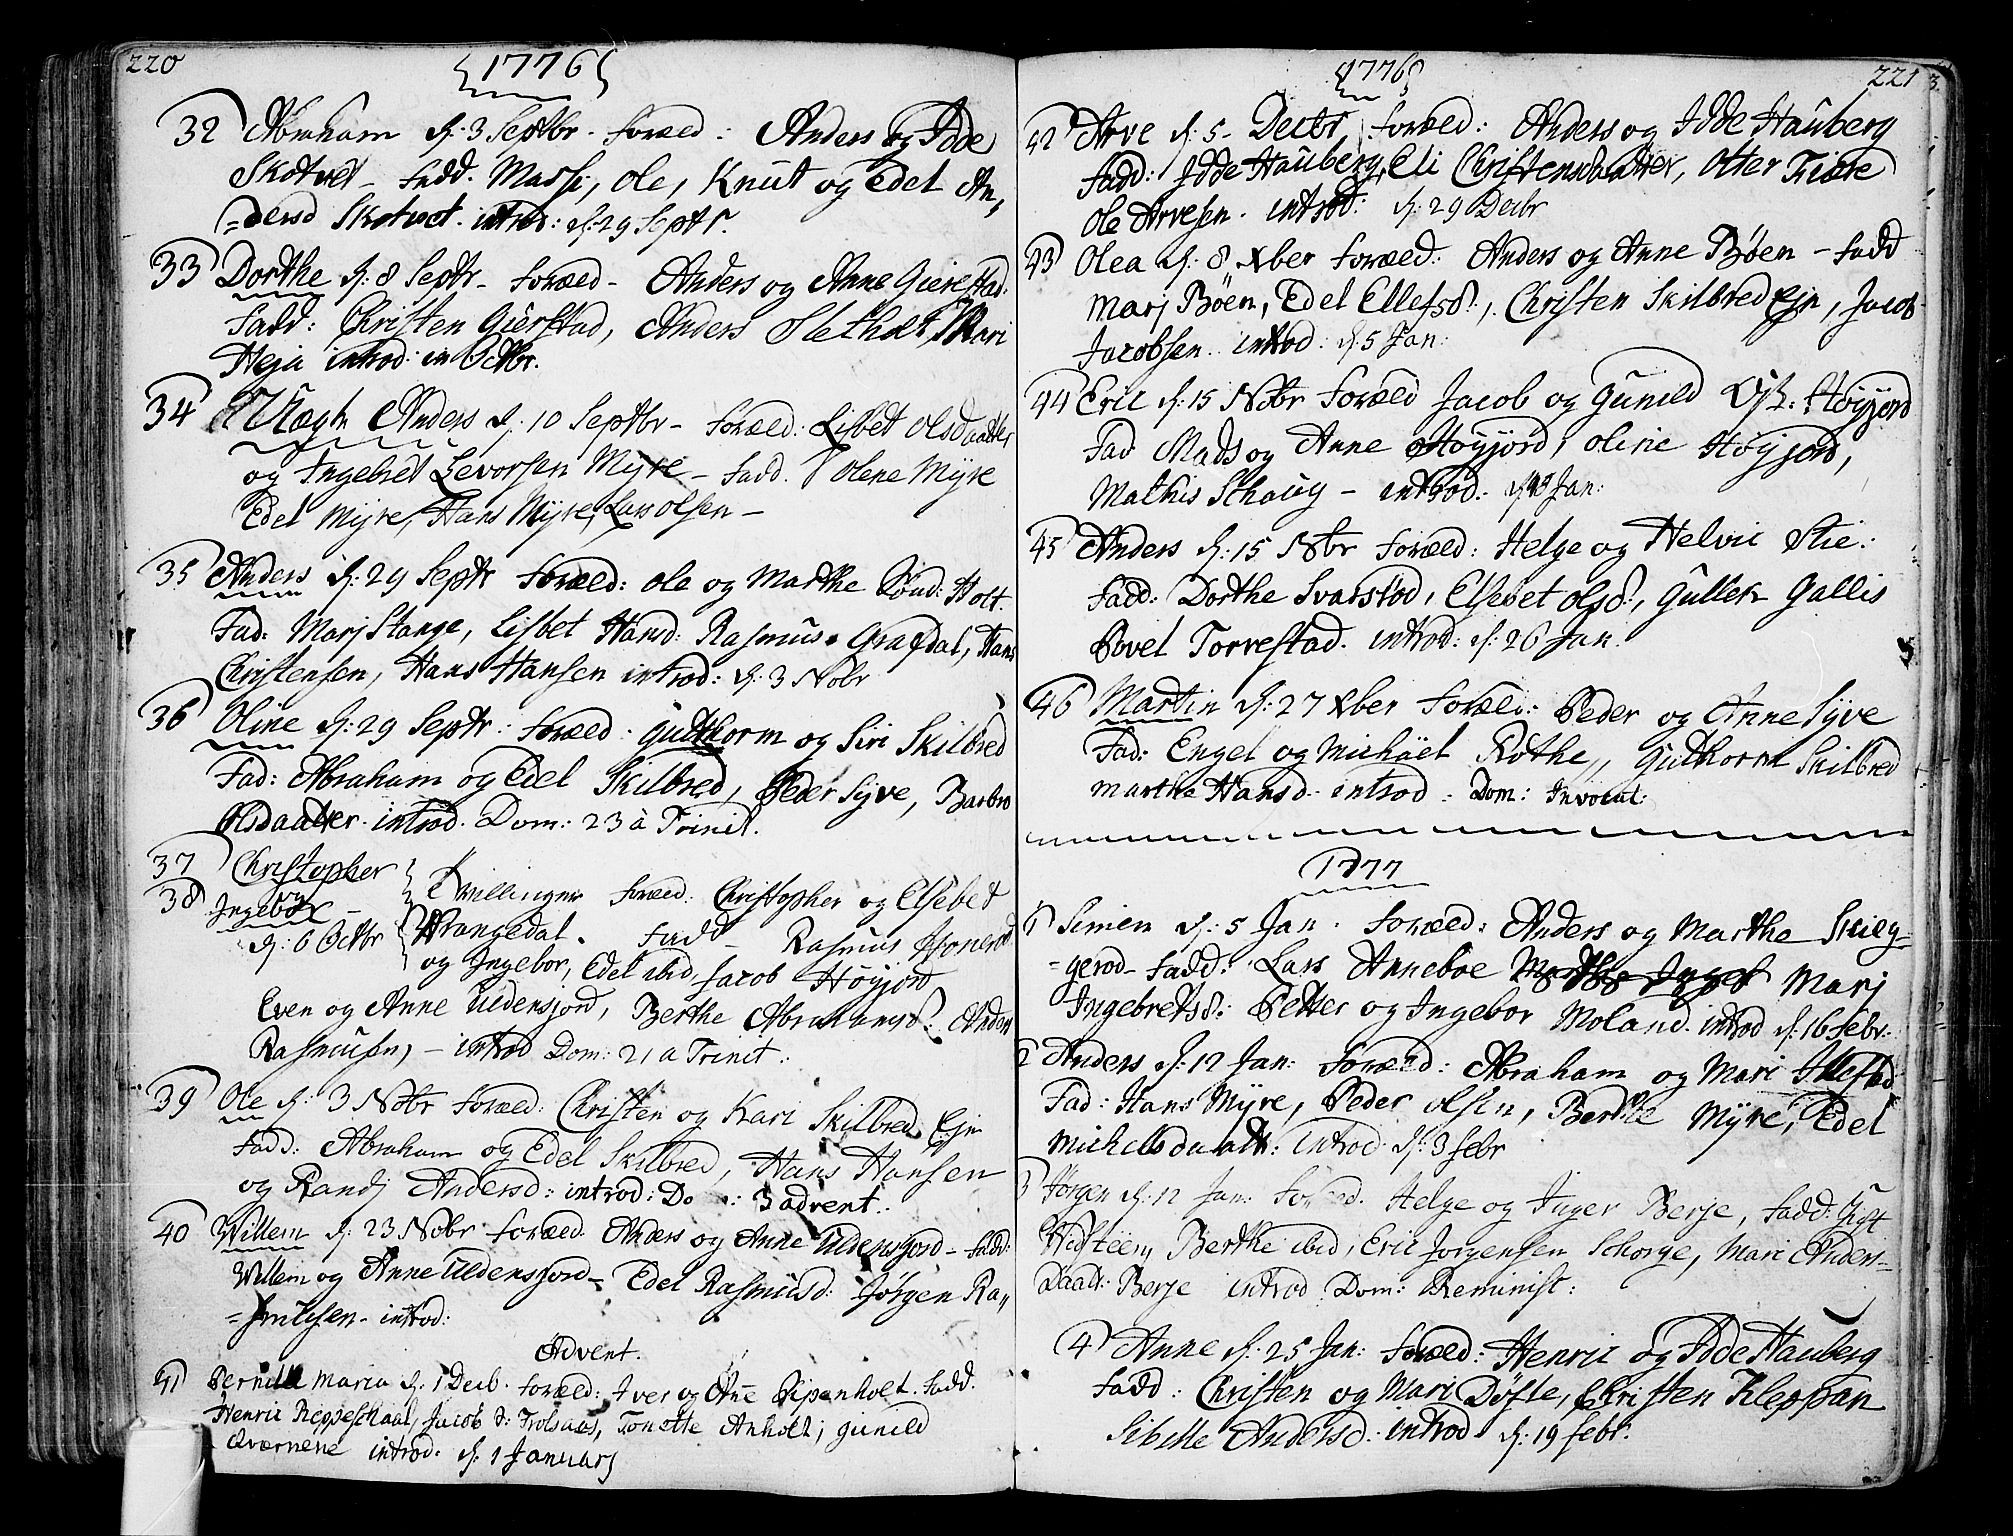 220
1776
32 Abraham d. 3 Septbr. foræld: Anders og Idde
Skotvet - fadd. Ole, Knut og Edel An,
=dersd Skotvet. introd: d. 29 Septr.
33 Dorthe d. 8 Septr - foræld - Anders og Anne Gierstad.
Fadd: Christen Gierstad, Anders Sletholt Mari
Heja introd: in Octbr.
34 Uægte Anders d. 10 Septbr - foræld: Lisbet Olsdaatter
og Ingebret Levorsen Myre - fadd. Olene Myre
Edel Myre, Hans Myre, Lars Olsen -
35 Anders d. 29 Septr foræld: Ole og Marthe Holt.
Fad: Marj Stange, Lisbet Hansd: Rasmus Grafdal, Hans
Christensen, Hans Hansen introd: d. 3 Nobr
36 Oline d. 29 Septr: foræld: Guthorm og Siri Skilbred
Fad: Abraham og Edel Skilbred, Peder Syve, Barbro
Olsdaatter. introd. Dom: 23 à Trinit.
37 Christopher
38 og Ingebor - Tvillinger foræld: Christopher og Elsebet
d. 6 Octbr Drangedal. Fadd - Rasmus
og Ingebor, Edel ibid, Jacob Høyjord
Even og Anne Uldensjord, Berthe Abrahamsd: Anders
Rasmusen, - introd Dom: 21 a Trinit:.
39 Ole d. 3 Nobr foræld: Christen og Kari Skilbred Ejn
Fadd: Abraham og Edel Skilbred, Hans Hansen
og Randj Andersd: introd: Do : 3 advent:.
40 Willem d. 23 Nobr foræld: Anders og Anne Uldensjord - fadd:
Willem og Anne Uldensjord - Edel Rasmusd: Jørgen Ra,,
=smusen - introd:
Advent.
41 Pernille Maria d. 1 Decb. foræld: Iver og Ane Ripenholt. fadd.
Henric Reppeschaal, Jacob S: Trolsaas, Tonette Anholt, Gunild
Qværnene introd: d. 1 Januarj
1776
221
42 Arve d. 5 - Decbr, foræld: Anders og Idde Hauberg
Fadd: Idde Hauberg, Eli Christensdaatter, Otter
Ole Arvesen. introd: d: 29 Decbr
43 Olea d. 8 Xber foræld: Anders og Anne Bøen - fadd
Marj Bøen, Edel Ellefsd:, Christen Skilbred Ejn, Jacob
Jacobsen. introd: d. 5 Jan:
44 Eric d. 15 Nobr foræld Jacob og Gunild Høyjord
Fad Mads og Anne Høyjord, Oline Høyjord,
Mathis Schaug - introd: Jan:
45 Anders d. 15 Nbr foræld: Helge og Helvic Stie:
Fadd: Dorthe Svarstod, Elsebet Olsd:, Gullek Gallis
Povel Torrestad. introd: d: 26 Jan.
46 Martin d. 27 Xber foræld: Peder og Anne Syve
Fad: Engel og Michäel Rothe,, Guthorm Skilbred
Marthe Hansd. introd: Dom: Invocat:
1777
1 Simen d. 5 Jan. foræld: Anders og Marthe Skieg=
=gerod - fadd: Lars Anneboe Marj
Ingebretsd: Petter og Ingebor Moland. introd d. 16 febr:
2 Anders d. 12 Jan: foræld: Abraham og Mari
Fad: Hans Myre, Peder Olsen, Berthe Myre, Edel
Michelsdaatt: introd d. 3 febr
3 Jørgen d. 12 Jan: foræld: Helge og Inger Berje, fadd:
Berthe ibid, Eric Jorgensen Schorge, Mari Anders-
Daatt: Berje introd Dom: Reminist:
4 Anne d. 25 Jan: foræld: Henric og Idde Hauberg
Fadd: Christen og Mari Døfte, Christen Kleppan
Sibelle Andersd: introd d: 19 febr.